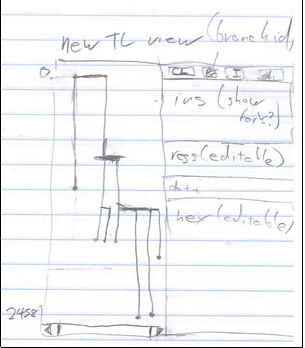 new TL view
(branch id,
0
I
ins (show
fork?)
regs(editable)
data
hex (editable)
2458